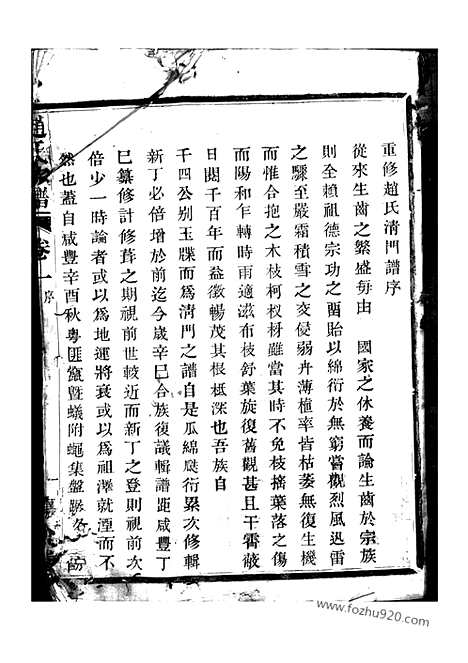 重修趙氏清門譜序
從來生齒之繁盛毎由　國家之休養而論生齒於宗族
則全賴祖德宗功之畱貽以綿衍於無窮嘗觀烈風迅雷
之驟至嚴霜積雪之交侵弱卉薄植率皆枯萎無復生機
而惟合抱之木枝柯杈枒雖當其時不免枝摘葉落之傷
而陽和乍轉時雨適滋布枝舒葉旋復舊觀甚且干霄蔽
日閱千百年而益徵暢茂其根柢深也吾族自
千四公别玉牒而爲清門之譜自是瓜綿瓞衍累次修輯
新丁必倍增於前迄今歲辛巳合族復議輯譜距咸豐丁
巳纂修計修葺之期視前世較近而新丁之登則視前次
倍少一時論者或以爲地運將衰或以爲祖澤就湮而不
然也蓋自咸豐辛酉秋粵匪竄曁蟻附蠅集盤
趙氏家譜
卷一
序
www.fozhu920.com